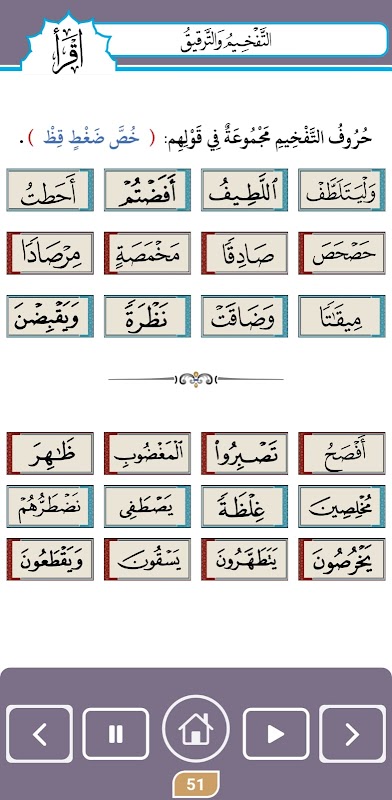 ٱقۡرَأۡ
التَّفْخِيمُ وَالتَّرْقِيقُ
حُرُوفُ التَّفْخِيمِ مَجْمُوعَةٌ فِي قَوْلِهِم: ( خُصَّ ضَغْطٍ قِظْ ) .
وَلۡيَتَلَطَّفۡ ٱللَّطِيفُ أَفَضۡتُمۡ أَحَطتُ
حَصۡحَصَ صَادِقٗا مَخۡمَصَةٍ مِرۡصَادٗا
مِيقَٰتٗا وَضَاقَتۡ نَظۡرَةٗ وَيَقۡبِضۡنَ
أَفۡصَحُ تَصۡبِرُواْ ٱلۡمَغۡضُوبِ ظَٰهِرَ
مُخۡلِصِينَ غِلۡظَةٗ يَصۡطَفِي نَضۡطَرُّهُمۡ
يَخۡرُصُونَ يَتَطَهَّرُونَ يَسۡقُونَ وَيَقۡطَعُونَ
51